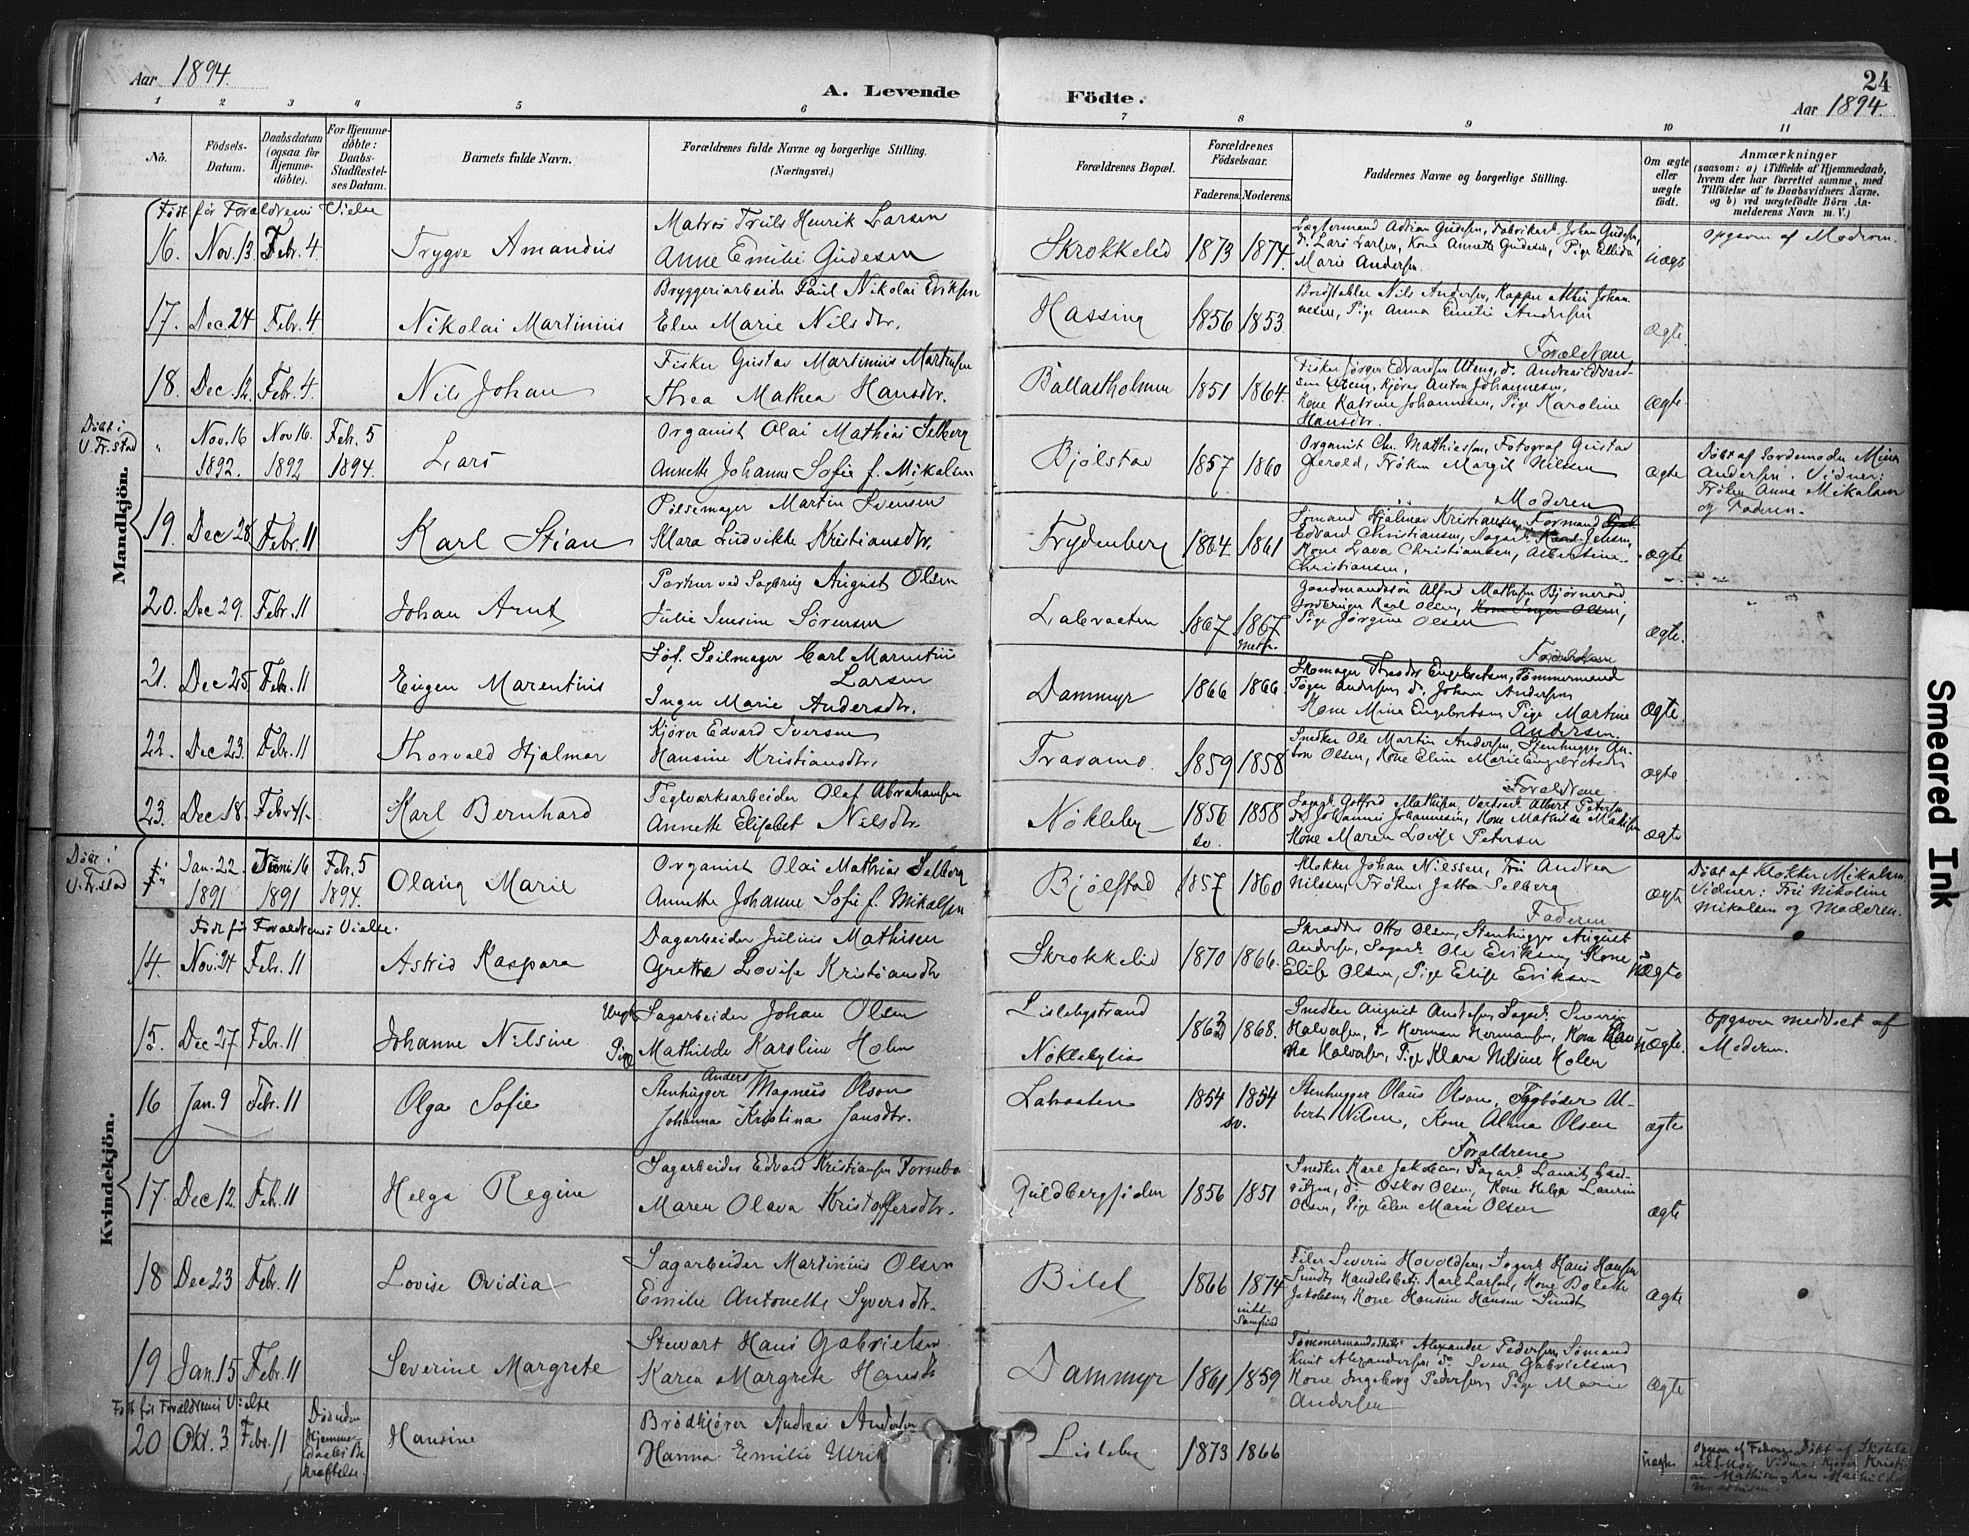 Aar 1894.
A. Levende Födte.
24
Aar 1894.
1 2 3 4 5 6 7 8 9 10 11
No.
Födsels-Datum.
Daabsdatum (ogsaa for Hjemme-döbte).
For Hjemme-döbte: Daabs-Stadfæstel-ses Datum.
Barnets fulde Navn.
Forældrenes fulde Navne og borgerlige Stilling.
(Næringsvei.)
Forældrenes Bopæl.
Forældrenes Födselsaar.
Faderens. Moderens.
Faddernes Navne og borgerlige Stilling.
Om ægte eller uægte födt.
Anmærkninger
(saasom: a) i Tilfælde af Hjemmedaab, hvem der har forrettet samme, med Tilföielse af to Daabsvidners Navne. og b) ved uægtefödte Börn An-melderens Navn m. V.)
Mandkjön.
Født før Forældrenes Vielse
16. Nov. 13. Febr. 4 Trygve Amandus
Matros Truls Henrik Larsen
Anne Emilie Gudesen
Skrokkelid 1873 1874.
Marie Andersen.
uægte
Opgivn af Moderen.
17. Dec. 24 Febr. 4 Nikolai Martinius
Bryggeriarbeider Paul Nikolai Eriksen
Elen Marie Nilsdtr.
Hassing 1856 1853
Nils Andersen,
Pige Anna Emilie Andersen
Ægte.
18. Dec 12. Febr. 4. Nils Johan
Fisker Gustav Martinius Martinsen
Thea Mathea Hansdtr.
Ballastholmen 1851 1864
Forældrene
Kone Katrine Johannesen, Pige Karoline
Hansdtr.
Ægte.
Døbt i
V. Fr.stad
" Nov. 16 1892. Nov 16. 1892 Febr. 5 1894. Lars
Organist Olai Mathias Selberg
Annette Johanne Sofie f. Mikalsen
Bjølstad 1857 1860
Organist Chr. Mathiessen, Fotograf Gustav
Frøken Margit Nilsen
Moderen
Ægte
Døbt af Jordemoder Mina
Andersen. Vidner:
Frøken Anna Mikalsen
og Faderen.
19. Dec 28. Febr. 11 Karl Stian
Pølsemager Martin Svensen
Klara Ludvikke Kristiansdtr.
Frydenberg 1864 1861
Sømand Hjalmar Kristiansen, Formand
Edvard Christiansen,
Kone Lava Christiansen, Albertine
Christiansen.
Ægte
20. Dec 29. Febr. 11 Johan Arnt
August Olsen
Julie Jensine Sørensen
Labraaten 1867 1867
Gaardmandssøn Alfred Mathisen Bjørnerød
Karl Olsen, Kone Inger Olsen,
Pige Jørgine Olsen
Forældrene
Ægte.
21. Dec 25 Febr. 11 Eugen Marentius
Seilmager Carl Marentius
Larsen
Inga Marie Andersdtr.
Dammyr 1866 1866.
Skomager Theodor Engebretsen, Tømmermand
Andersen, do. Johan Andersen
Kone Mina Engebretsen Pige Martine
Andersen.
Ægte.
22. Dec 23. Febr. 11 Thorvald Hjalmar
Kjører Edvard Iversen
Hansine Kristiansdtr.
Traramo. 1859 1858
Snedker Ole Martin Andersen, Stenhugger An-
ton Olsen, Kone Eline Marie Engebretsdtr.
Forældrene.
Ægte
23. Dec 18. Febr. 11. Karl Bernhard
Teglværksarbeider Olaf Abrahamsen
Annette Elisabet Nilsdtr.
Nøkleby 1856 sv. 1858
Sagarb. Gotfred Mathisen, Værtsarb. Albert Petersen
do Johannes Johannesen, Kone Mathilde Mathisen
Kone Maren Lovise Petersen
Ægte
Kvindekjön.
Døbt i
V. Fr.stad
Jan. 22. 1891 Juni 16 1891 Febr. 5 1894. Olaug Marie
Organist Olai Mathias Selberg
Annette Johanne Sofie f. Mikalsen
Bjølstad 1857 1860
Klokker Johan Nilssen, Fru Andrea
Nilsen, Frøken Jetta Selberg
Faderen
Ægte
Døbt af Klokker Mikalsen.
Vidner: Fru Nikoline
Mikalsen og Moderen.
Født før Forældrenes Vielse.
14. Nov. 24 Febr. 11 Astrid Kaspara
Dagarbeider Julius Mathisen
Grethe Lovise Kristiansdtr
Skrokkelid 1870 1866.
Skrædder Otto Olsen, Stenhugger August
Andersen, Sagarb. Ole Eriksen, Kone
Elise Olsen, Pige Elise Eriksen
uægte
15. Dec 27 Febr. 11 Johanne Nilsine
Ungk. Sagarbeider Johan Olsen
Pige Mathilde Karoline Holm
Lislebystrand
Nøklebylia
1863 1868.
Snedker August Andersen, Sagarb.
Halvorsen, do Herman Hermansen, Kone
Halvorsen, Pige Klara Nilsine Holm
uægte.
Opgaven meddelt af
Moderen.
16 Jan. 9 Febr. 11 Olga Sofie
Stenhugger Anders Magnus Olson
Johanna Kristina Jansdtr.
Labraaten 1854 1854
sv.
Stenhugger Olaus Olson, Fyrbøder Al-
bert Nilsen, Kone Alma Olsen
Forældrene
Ægte
17 Dec 12. Febr. 11 Helga Regine
Sagarbeider Edvard Kristiansen Fornebo
Maren Olava Kristoffersdtr.
Guldbergsiden 1856 1851
Snedker Karl Jakobsen, Sagarb. Laurits
do. Oskar Olsen, Kone Helga Laurin
Olsen, Pige Elen Marie Olsen
Ægte
18 Dec 23 Febr. 11 Lovise Ovidia
Sagarbeider Martinius Olsen
Emilie Antonette Syversdtr.
Bilet 1866 1874
Filer Severin Havoldsen, Sagarb. Hans Hansen
Sundt, Handelsbetj. Karl Larsen, Kone Bolette
Jakobsen, Kone Hansine Hansen Sundt
Ægte
19 Jan. 15 Febr. 11 Severine Margrete
Stewart Hans Gabrielsen
Karen Margrete Hansdtr
Dammyr 1861 1859
Alexander Pedersen, Sømand
Knut Alexandersen, do. Sven Gabrielsen,
Kone Ingeborg Pedersen, Pige Marie
Andersen
Ægte
Født før Forældrenes Vielse
20 Okt. 3 Febr. 11 Hansine
Død uden
Hjemme-
daabs Be-
kræftelse.
Brødkjører Andreas Andersen
Hanna Emilie Ulrik
Lisleby 1873 1866
uægte
Opgivn af Faderen. Døbt af
Vidner: Kjører Kristi-
an Mathisen, Kone Mathilde
Mathisen.
Smeared Ink